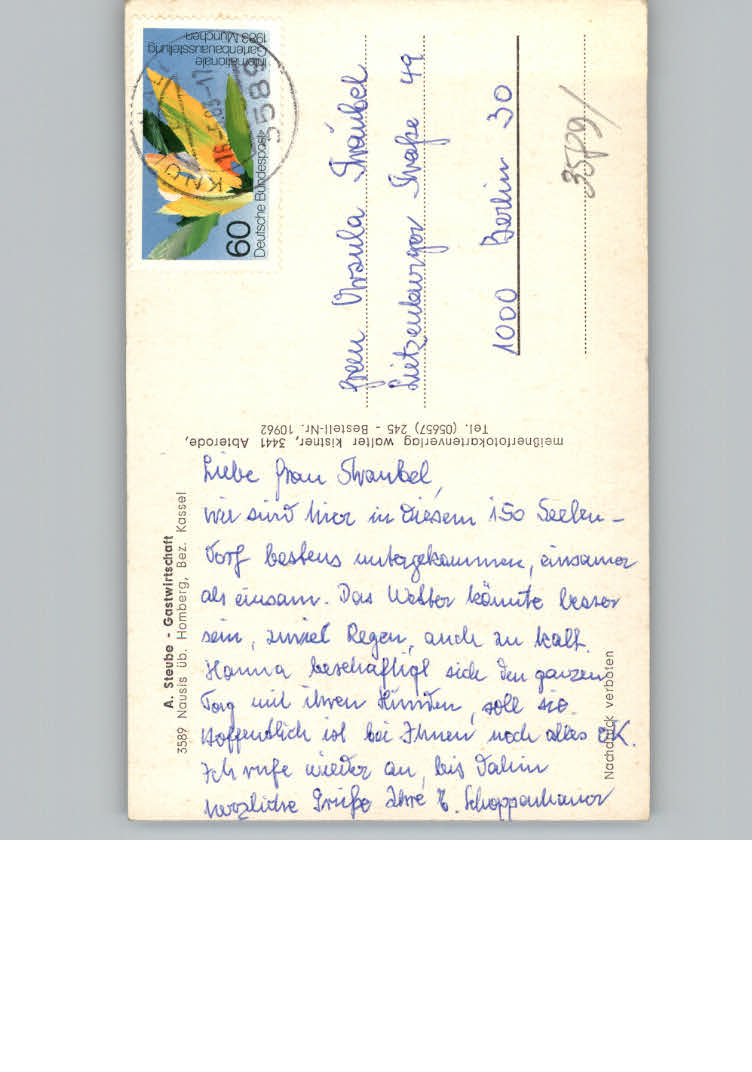 Internationale
Gartenbauausstellung
1983 München
60
Deutsche Bundespost
3589
KNÜL
Frau Ursula Straubel
Lietzenburger Straße 49
1000 Berlin 30
meißnerfotokartenverlag walter kistner, 3441 Abterode,
Tel. (05657) 245 - Bestell-Nr. 10962
A. Steube - Gastwirtschaft
3589 Nausis üb. Homberg, Bez. Kassel
Liebe Frau Straubel,
wir sind hier in diesem 150 Seelen-
dorf bestens untergekommen, einsamer
als einsam. Das Wetter könnte besser
sein, zuviel Regen, auch zu kalt.
Hanna beschäftigt sich den ganzen
Tag mit ihren Hunden, soll sie.
Hoffentlich ist bei Ihnen noch alles OK.
Ich rufe wieder an, bis dahin
herzliche Grüße Ihre E. Schoppenhauer
Nachdruck verboten